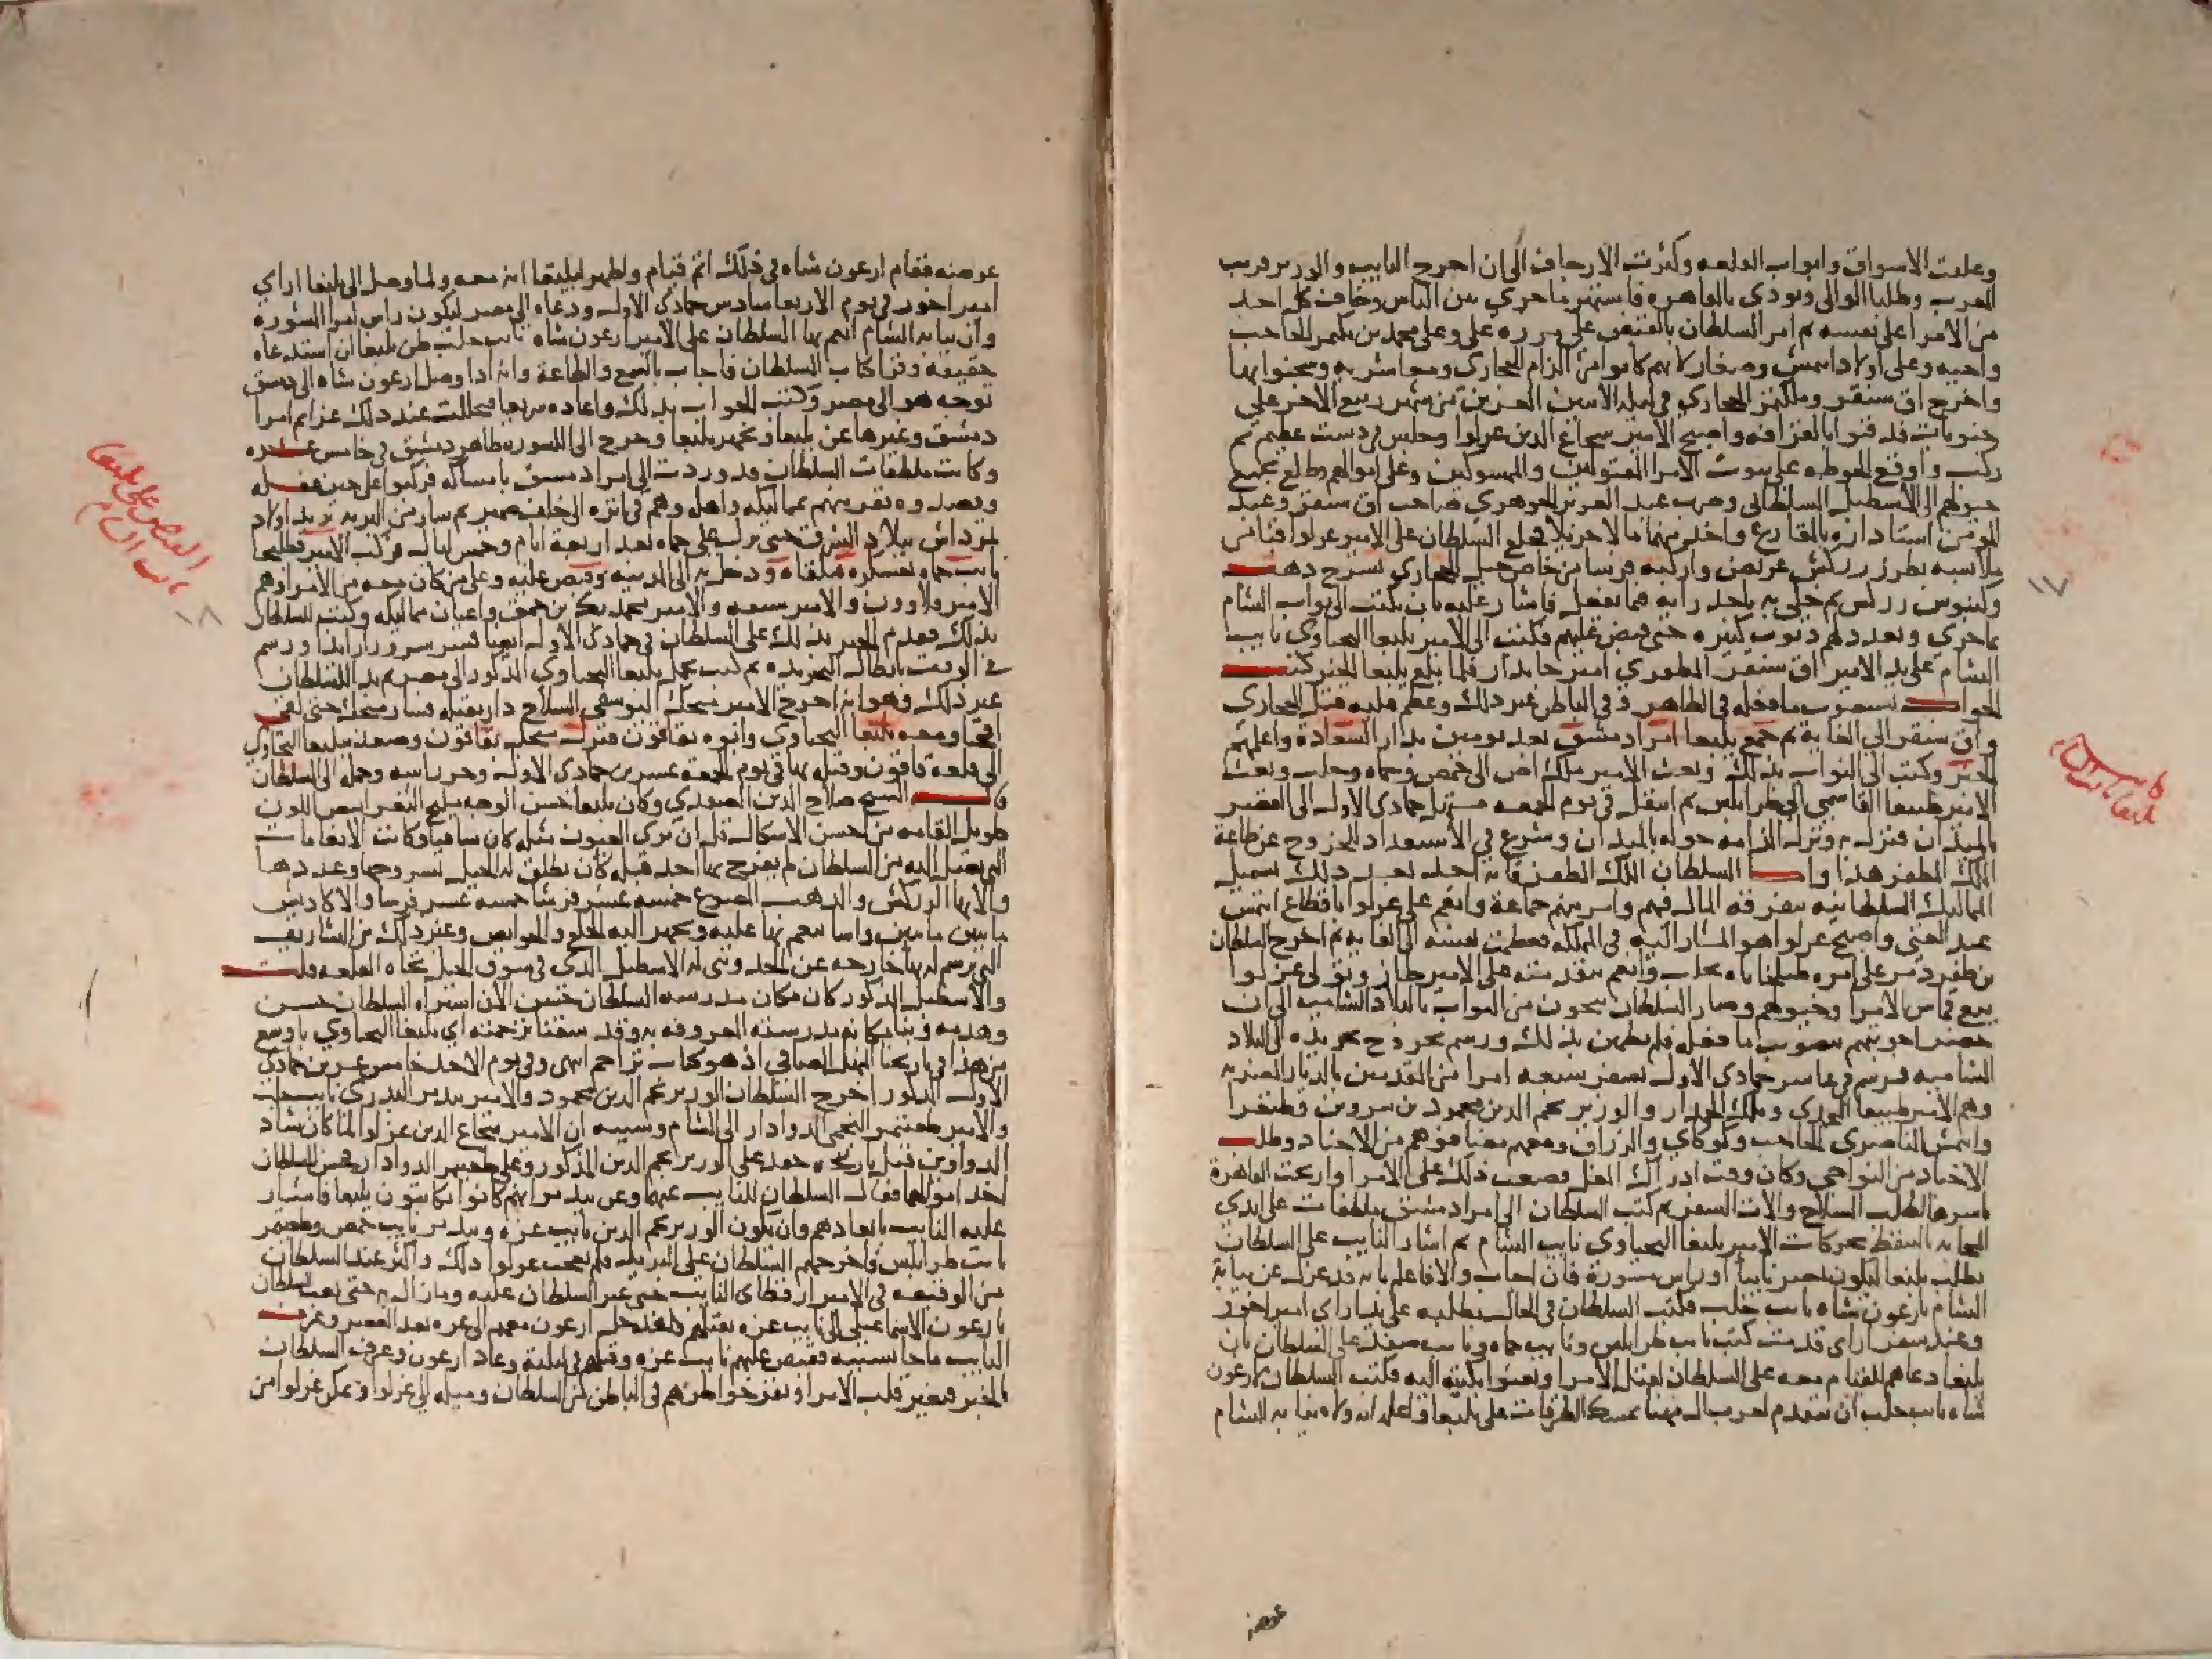 وغلقت الاسواق وابواب القلعه وكثرت الارجاف الى ان اخرج النايب والوزير قريب
المغرب وطلبا الوالى ونودى بالقاهره فاشتهر ما جرى بين الناس وخاف كل احد
من الامرا على نفسه ثم امر السلطان بالقبض على وعلى محمد بن بكتمر الحاجب
واخيه وعلى اولاد ايتمش وصغار كانهم كانوا من الزام الحجازى ومعاشريه وسجنوا بها
واخرج اق سنقر وملكتمر الحجازى فى ليله الاثنين العشرين من شهر ربيع الاخر على
جنويات فدفنوا بالقرافه واصبح الامير شجاع الدين غرلوا وجلس فى دست عظيم ثم
ركب واوقع الحوطه على بيوت الامرا المقتولين والممسوكين وعلى اموالهم وطلع بجميع
خيولهم الى الاسطبل السلطانى وضرب عبد العزيز الجوهرى صاحب اق سنقر وعبد
المومن استاداره بالمقارع واخذ منهما مالا جزيلا فخلع السلطان على الامير غرلوا قبا من
ملابسه بطرز زركش عريض واركبه فرسا من خاص خيل الحجازى بسرج ذهب
وكنبوش زركش ثم خلى به ياخذ رايه فيما يفعل فاشار عليه بان يكتب الى نواب الشام
بما جرى وتعدد لهم ذنوب كثيره حتى قبض عليهم فكتب الى الامير يلبغا اليحياوى نايب
الشام على يد الامير اق سنقر المظفرى امير جاندار فلما بلغ يلبغا الخبر كتب
الجواب بتصويب ما فعله فى الظاهر وفى الباطن غير ذلك وعظم عليه قتل الحجازى
واق سنقر الى الغايه ثم جمع يلبغا امرا دمشق بعد يومين بدار السعاده واعلمهم
الخبر وكتب الى النواب بذلك وبعث الامير ملك اص الى حمص وحماه وحلب وبعث
الامير طيبغا القاسمى الى طرابلس ثم انتقل فى يوم الجمعه مستهل جمادى الاولى الى القصر
بالميدان فنزله ونزل الزامه حوله بالميدان وشرع فى الاستعداد للخروج عن طاعة
الملك المظفر هذا واما السلطان الملك المظفر فانه اخذ بعد ذلك يستميل
المماليك السلطانيه بتفرقه المال فيهم وامر منهم جماعة وانعم على غرلوا باقطاع ايتمش
عبد الغنى واصبح غرلوا هو المشار اليه فى المملكه فعظمت نفسه الى الغايه ثم اخرج السلطان
بن طقزدمر على امره طبلخاناه بحلب وانعم بتقدمته على الامير طاز وتولى غرلوا
بيع قماش الامرا وخيولهم وصار السلطان يتخوف من النواب بالبلاد الشاميه الى ان
حضر اجوبتهم بتصويب ما فعله فلم يطمئن بذلك ورسم بخروج تجريده الى البلاد
الشاميه فرسم فى عاشر جمادى الاولى بسفر سبعه امرا من المقدمين بالديار المصريه
وهم الامير طيبغا المجدى وملك الجمدار والوزير نجم الدين محمود بن شروين وطنغرا
وايتمش الناصرى الحاجب وكوكاى والزراق ومعهم مضافوهم من الاجناد وطلب
الاجناد من النواحى وكان وقت ادراك المغل فصعب ذلك على الامرا وارتجت القاهرة
باسرها لطلب السلاح والات السفر ثم كتب السلطان الى امرا دمشق ملطفات على ايدى
النجابه بالتيقظ بحركات الامير يلبغا اليحياوى نايب الشام ثم اشار النايب على السلطان
بطلب يلبغا ليكون بمصر نايبا او راس مشورة فان اجاب والا فاعلم بانه قد عزل عن نيابة
الشام بارغون شاه نايب حلب فكتب السلطان فى الحال بطلبه على يد اراى امير اخور
وعند سفر اراى قدمت كتب نايب طرابلس ونايب حماه ونايب صفد على السلطان بان
يلبغا دعاهم للقيام معه على السلطان لقتل الامرا وبعثوا بكتبه اليه فكتب السلطان لارغون
شاه نايب حلب ان يتقدم لعرب ال مهنا بمسك الطرقات على يلبغا واعلمه انه ولاه نيابه الشام
عوضه
كاينة
يلبغا نايب الشام
١٧
عوضه فقام ارغون شاه فى ذلك اتم قيام واظهر ليلبغا انه معه ولما وصل الى يلبغا اراى
امير اخور فى يوم الاربعا سادس جمادى الاولى ودعاه الى مصر ليكون راس امرا المشوره
وان نيابه الشام انعم بها السلطان على الامير ارغون شاه نايب حلب ظن يلبغا ان استدعاه
حقيقه وقرا كتاب السلطان فاجاب بالسمع والطاعة وانه اذا وصل ارغون شاه الى دمشق
توجه هو الى مصر وكتب الجواب بذلك واعاده سريعا فتحللت عند ذلك عزايم امرا
دمشق وغيرها عن يلبغا وتجهز يلبغا وخرج الى الجسوره ظاهر دمشق فى خامس عشره
وكانت ملطفات السلطان قد وردت الى امرا دمشق بامساكه فركبوا على حين غفله
وقصدوه ففر منهم بمماليكه واهله وهم فى اثره الى خلف ضمير ثم سار من البريه يريد اولاد
تمرداش ببلاد الشرق حتى نزل على حماه بعد اربعه ايام وخمس ليال فركب الامير قطليجا
نايب حماه بعسكره فتلقاه ودخل به الى المدينه وقبض عليه وعلى من كان معه من الامرا وهم
الامير قلاوون والامير سيفه والامير محمد بك بن جمق واعيان مماليكه وكتب للسلطان
بذلك فقدم الخبر بذلك على السلطان فى جمادى الاولى ايضا فسر سرورا زايدا ورسم
فى الوقت بابطال التجريده ثم كتب بحمل يلبغا اليحياوى المذكور الى مصر ثم بدا للسلطان
غير ذلك وهو انه اخرج الامير منجك اليوسفى السلاح دار بقتله فسار منجك حتى لقى
اقجبا ومعه يلبغا اليحياوى وابوه بقاقون فنزل منجك بقاقون وصعد بيلبغا اليحياوى
الى قلعة قاقون وقتله بها فى يوم الجمعة عشرين جمادى الاولى وحز راسه وحمله الى السلطان
قال الشيخ صلاح الدين الصفدى وكان يلبغا حسن الوجه مليح الثغر ابيض اللون
طويل القامه من احسن الاشكال قل ان ترى العيون مثله كان ساقيا وكانت الانعامات
التى تصل اليه من السلطان لم يفرح بها احد قبله كان يطلق له الخيل بسروجها وعددها
والاتها الزركش والذهب المصوغ خمسه عشر فرسا خمسه عشر فرسا والاكاديش
ما بين مايتين راسا ينعم بها عليه ويجهز اليه الخلع والحوايص وغير ذلك من التشاريف
التى يرسم له بها خارجه عن الحد وبنى له الاسطبل الذى فى سوق الخيل تجاه القلعه قلت
والاسطبل المذكور كان مكان مدرسه السلطان حسن الان اشتراه السلطان حسن
وهدمه وبنى مكانه مدرسته المعروفه به وقد سقنا ترجمته اى يلبغا اليحياوى باوسع
من هذا فى تاريخنا المنهل الصافى اذ هو كتاب تراجم انتهى وفى يوم الاحد خامس عشرين جمادى
الاولى المذكور اخرج السلطان الوزير نجم الدين محمود والامير بيدمر البدرى نايب حلب
والامير طغيتمر النجمى الدوادار الى الشام وسببه ان الامير شجاع الدين غرلوا لما كان شاد
الدواوين قبل تاريخه حقد على الوزير نجم الدين المذكور وعلى طغيتمر الدوادار فحسن للسلطان
اخذ اموالهما فقال السلطان للنايب عنهما وعن بيدمر انهم كانوا يكاتبون يلبغا فاشار
عليه النايب بابعادهم وان يكون الوزير نجم الدين نايب غزه وبيدمر نايب حمص وطغيتمر
نايب طرابلس فاخرجهم السلطان على البريد فلم يعجب غرلوا ذلك واكثر عند السلطان
من الوقيعه فى الامير ارقطاى النايب حتى غير السلطان عليه وما زال به حتى بعث السلطان
بارغون الاسماعيلى الى نايب غزه بقتلهم فدخل ارغون معهم الى غزه بعد العصر وعرف
النايب ما جا بسببه فقبض عليهم نايب غزه وقتلهم فى ليلته وعاد ارغون وعرف السلطان
بالخبر فتغير قلب الامرا ونفر خواطرهم فى الباطن من السلطان وميله الى غرلوا وتمكن غرلوا من
القبض على يلبغا
نايب الشام
١٨